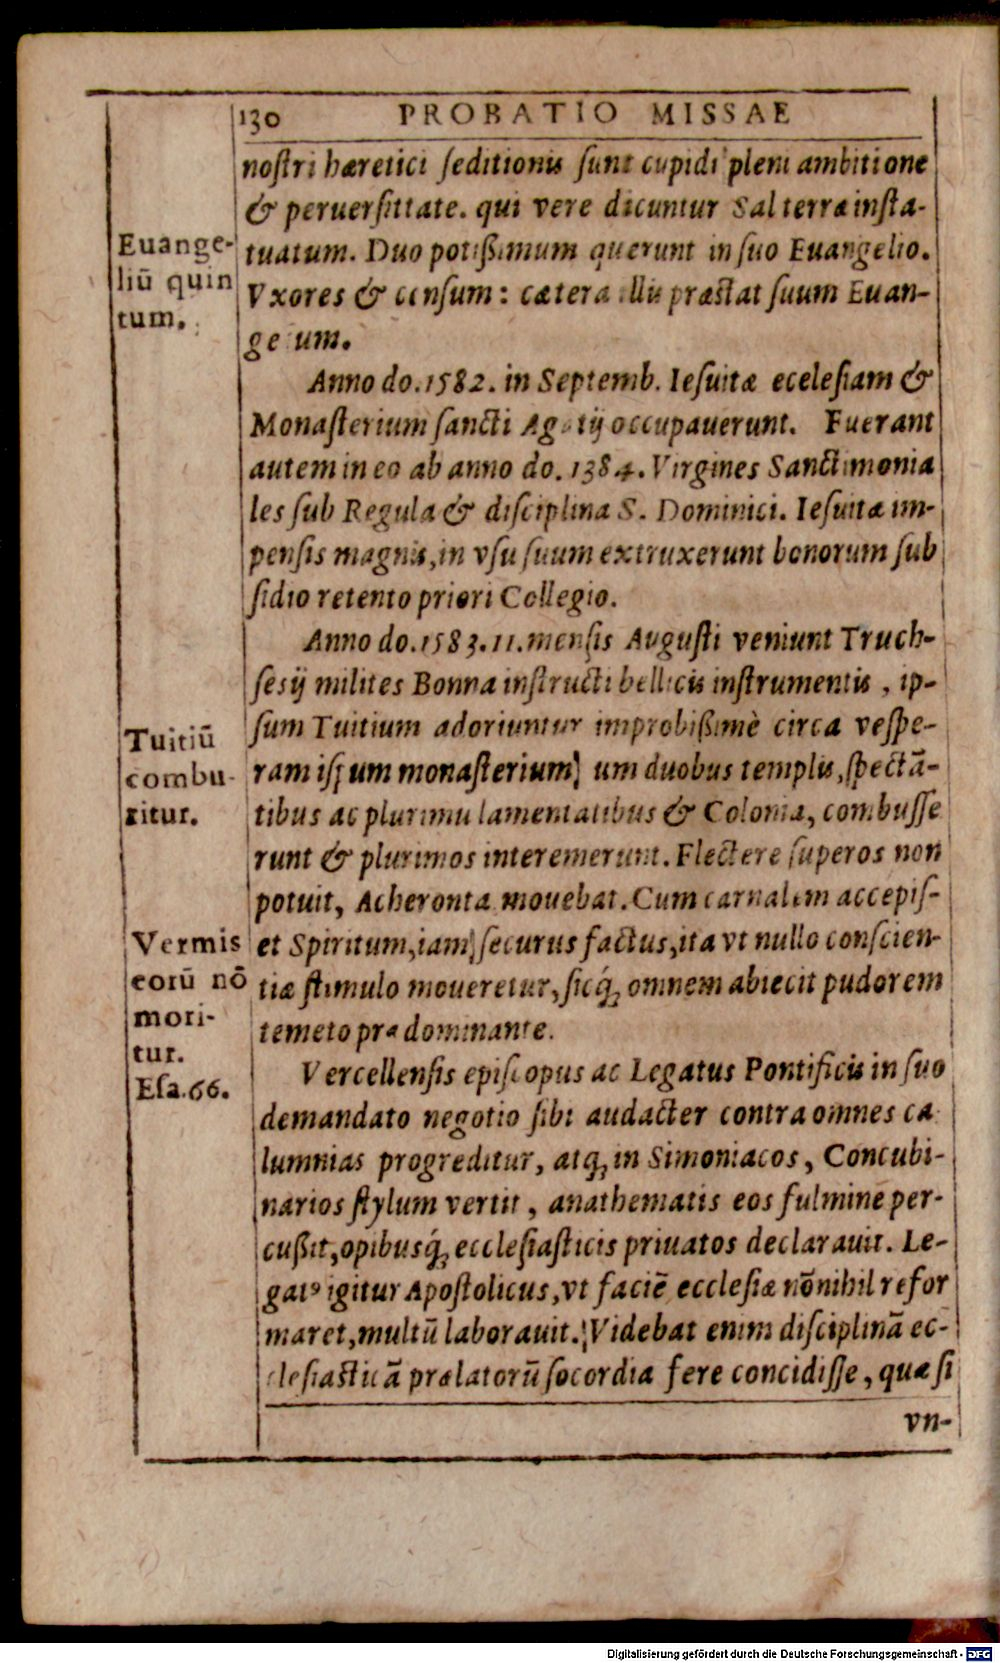 130 PROBATIO MISSAE
nostri hæretici seditionis sunt cupidi pleni ambitione
& peruersittate. qui vere dicuntur Sal terræ insta-
Euange-
tuatum. Duo potißimum querunt in suo Euangelio.
liū quin
Vxores & censum: cætera illis præstat suum Euan-
tum.
ge um.
Anno do. 1582. in Septemb. Iesuitæ ecelesiam &
Monasterium sancti Ag tij occupauerunt. Fuerant
autem in eo ab anno do. 1384. Virgines Sanctimonia
les sub Regula & disciplina S. Dominici. Iesuitæ im-
pensis magnis, in vsu suum extruxerunt bonorum sub
sidio retento priori Collegio.
Anno do. 1583. 11. mensis Augusti veniunt Truch-
sesij milites Bonna instructi bellicis instrumentis, ip-
sum Tuitium adoriuntur improbißimè circa vespe-
Tuitiū
ram ipsum monasterium um duobus templis, spectā-
combu-
ritur.
tibus ac plurimu lamentatibus & Colonia, combusse
runt & plurimos interemerunt. Flectere superos non
potuit, Acheronta mouebat. Cum carnalem accepis-
Vermis
et Spiritum, iam securus factus, ita vt nullo conscien-
eorū nō
tiæ stimulo moueretur, sicq́; omnem abiecit pudorem
mori-
temeto præ dominante.
tur.
Esa. 66.
Vercellensis episcopus ac Legatus Pontificis in suo
demandato negotio sibi audacter contra omnes ca
lumnias progreditur, atq; in Simoniacos, Concubi-
narios stylum vertit, anathematis eos fulmine per-
cußit, opibusq́; ecclesiasticis priuatos declarauit. Le-
gatꝰ igitur Apostolicus, vt faciē ecclesiæ nōnihil refor
maret, multū laborauit. Videbat enim disciplinā ec-
clesiasticā prælatorū socordia fere concidisse, quæ si
vn-
Digitalisierung gefördert durch die Deutsche Forschungsgemeinschaft - DFG